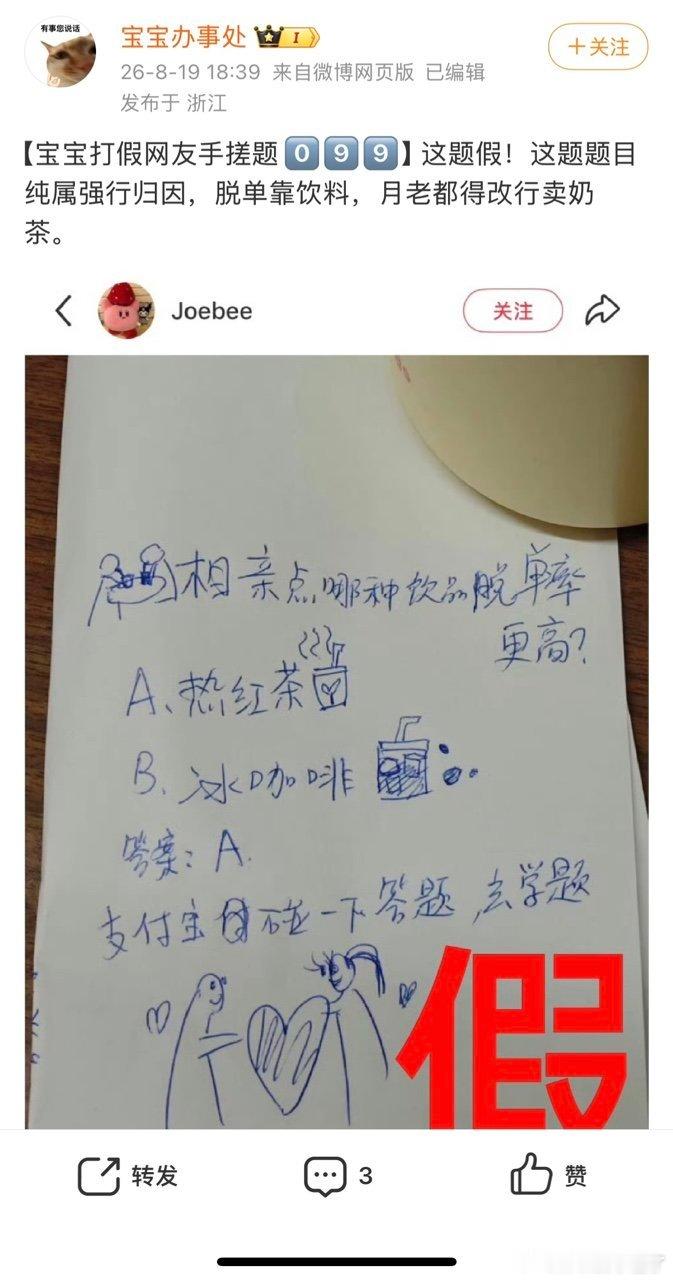 有事您说话
宝宝办事处
I
+关注
26-8-19 18:39 来自微博网页版 已编辑
发布于 浙江
【宝宝打假网友手搓题099】这题假！这题题目
纯属强行归因，脱单靠饮料，月老都得改行卖奶
茶。
Joebee
关注
相亲点哪种饮品脱单率
更高？
A、热红茶
B、冰咖啡
答案：A.
支付宝 碰一下答题，去学题
假
转发
3
赞